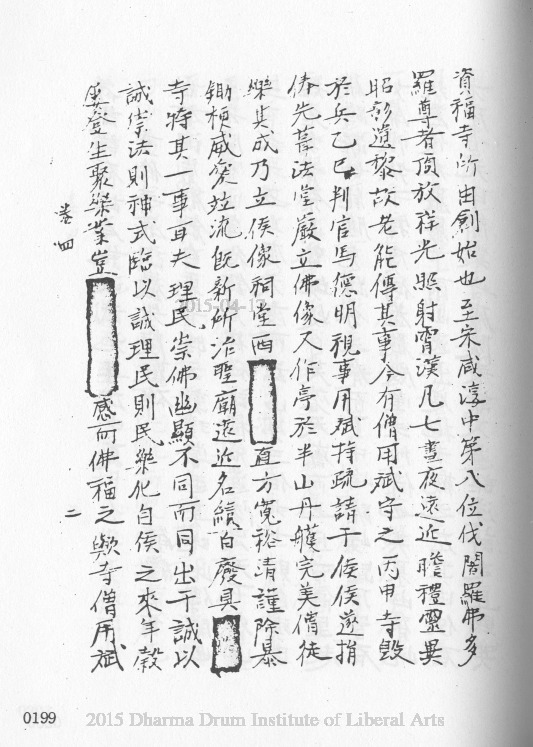 資福寺所由創始也至宋咸淳中第八位伐闍羅弗多
羅尊者頂放祥光照射霄漢凡七晝夜遠近瞻禮靈異
昭彰遺黎故老能傳其事今有僧用斌守之丙申寺毀
於兵乙巳判官馬德明視事用斌持疏請于侯侯遂捐
俸先葺法堂嚴立佛像又作亭於半山丹艧完美僧徒
樂其成乃立侯像祠堂西
直方寬裕清謹除暴
鋤梗威 竝流既新所治聖廟遠近名 百廢具
寺特其一事耳夫理民崇佛幽顯不同而同出于誠以
誠崇法則神式臨以誠理民則民樂化自侯之來年穀
屢登生聚樂業豈
感而佛福之歟寺僧用斌
卷四
二
0199
2015 Dharma Drum Institute of Liberal Arts
2015-04-13